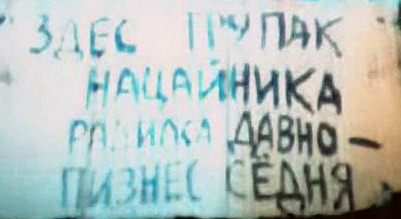 ЗДЕС ПРУПАК
НАЦАЙНИКА
РАДИЛСА ДАВНО –
ПИЗНЕС СЁДНЯ